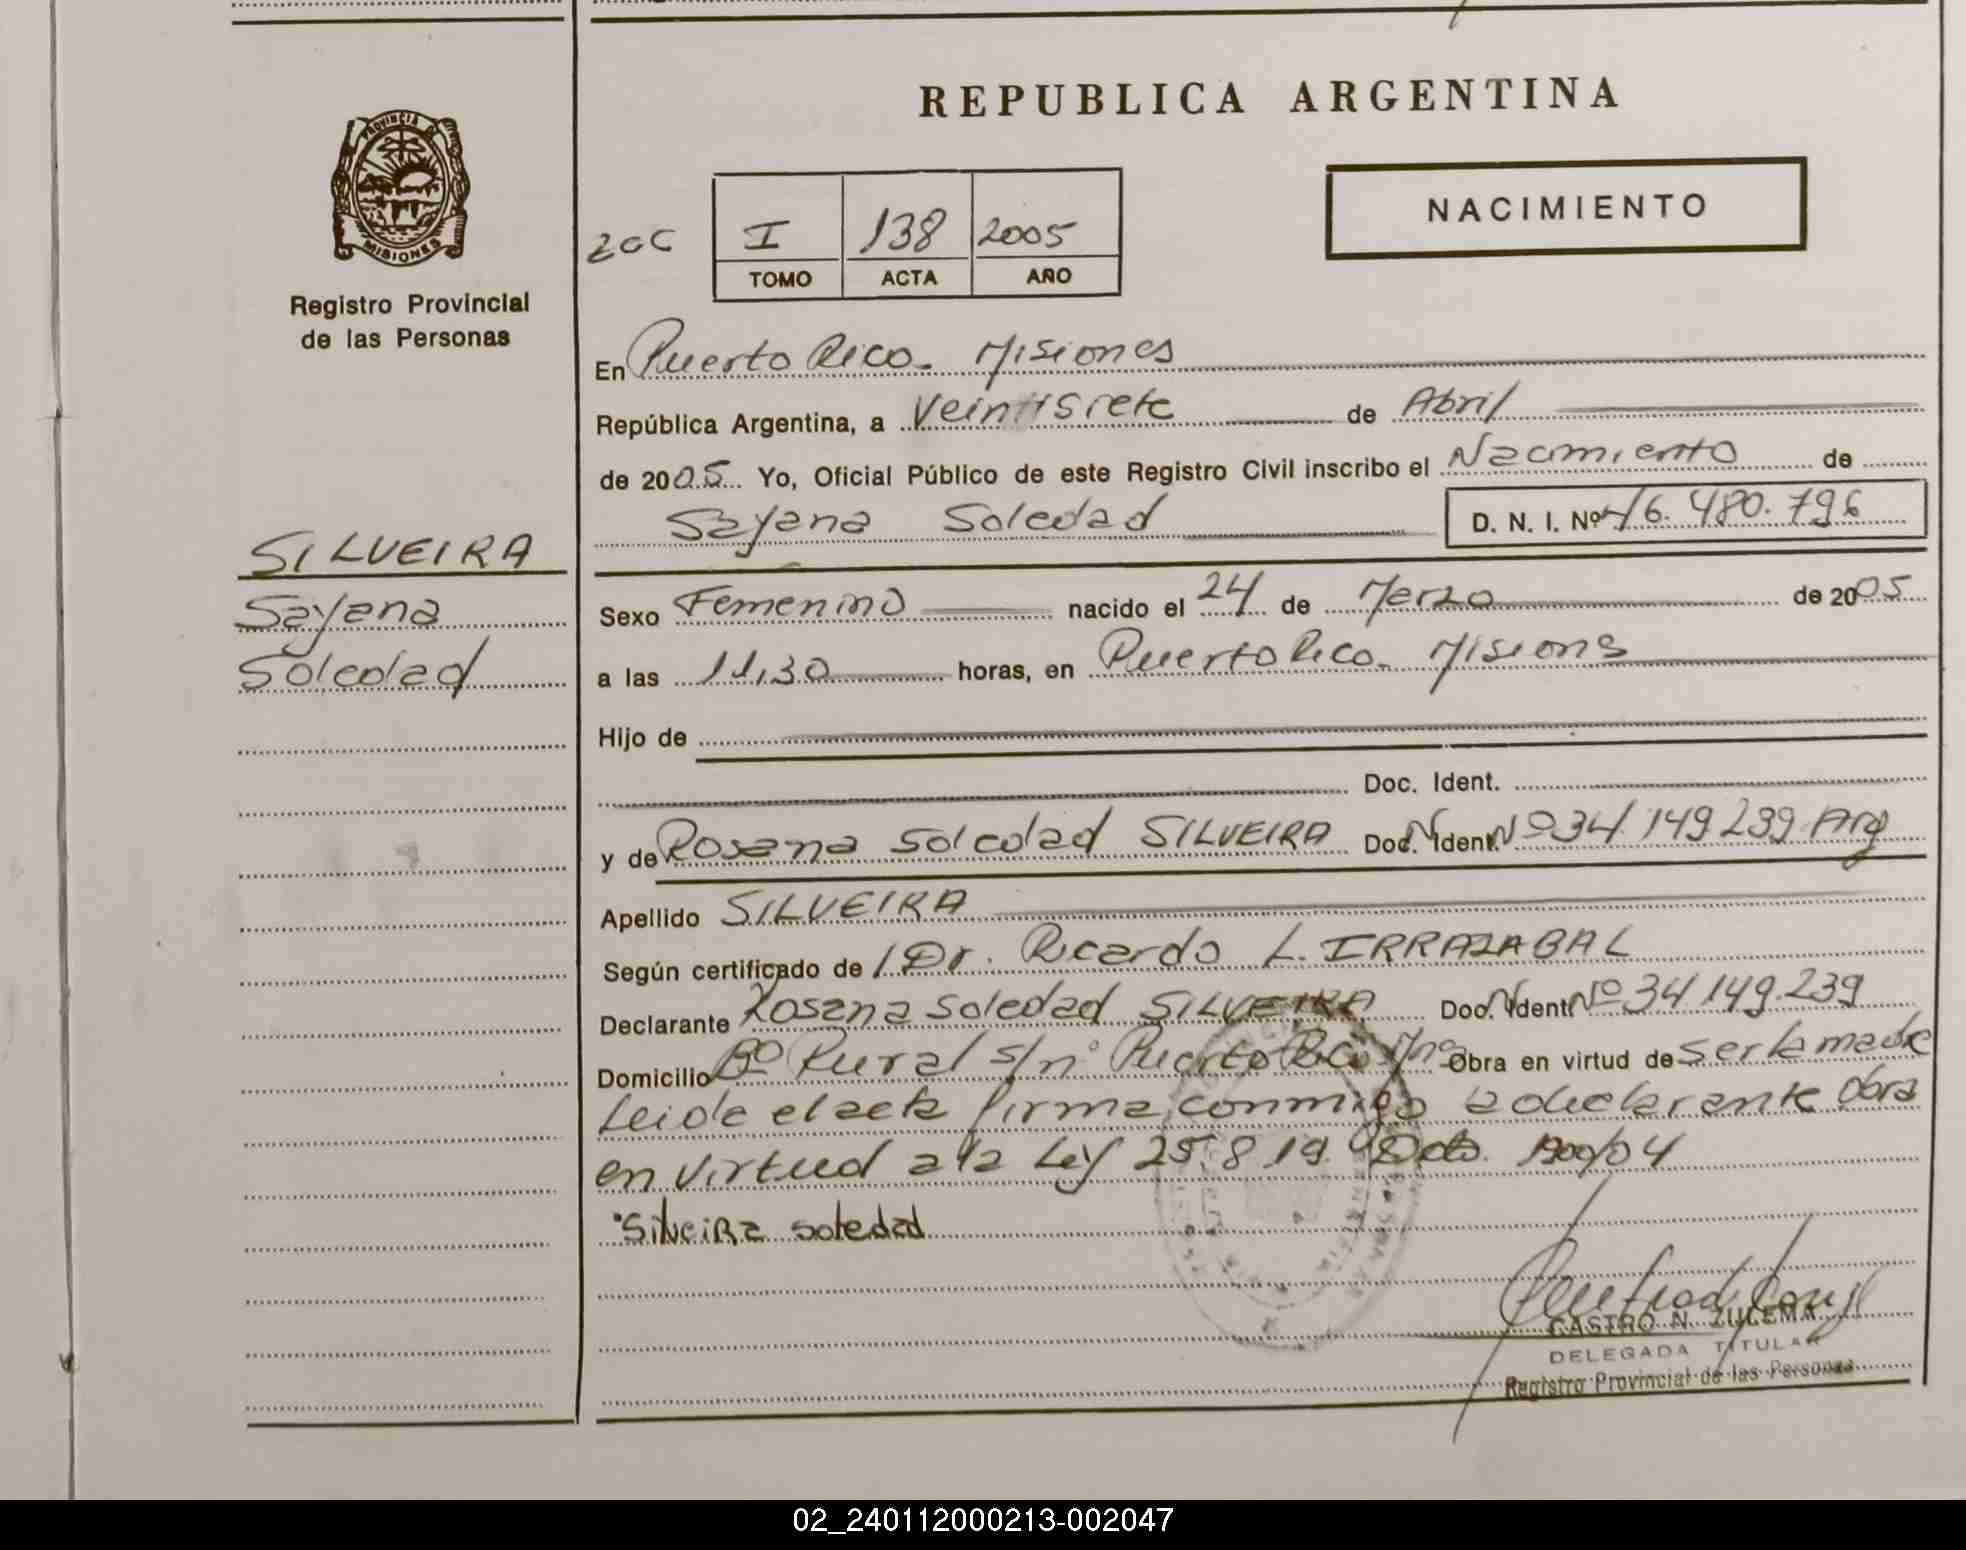 REPUBLICA ARGENTINA
PROVINCIA DE
MISIONES
Registro Provincial
de las Personas
NACIMIENTO
I 138 2005
TOMO ACTA AÑO
En Puerto Rico. Misiones
República Argentina, a Veintisiete de Abril
de 2005 Yo, Oficial Público de este Registro Civil inscribo el Nacimiento de
Sayana Soledad D. N. I. Nº 46.480.796
SILVEIRA
Sayana
Soledad
Sexo Femenino nacido el 24 de Marzo de 2005
a las 11,30 horas, en Puerto Rico. Misiones
Hijo de
Doc. Ident.
y de Rosana Soledad SILVEIRA Doc. Ident. Nº 34.149.239 Arg
Apellido SILVEIRA
Según certificado de Dr. Ricardo L. IRRAZABAL
Declarante Rosana Soledad SILVEIRA Doc. Ident. Nº 34.149.239
Domicilio Bº Rural s/nº Puerto Rico Mnes Obra en virtud de ser la madre
Leida el acta firma conmigo la declarante Obra
en virtud a la Ley 25.819. Dcto. 1900/04
Silveira soledad
CASTRO N. ZULEMA
DELEGADA TITULAR
Registro Provincial de las Personas
02_240112000213-002047